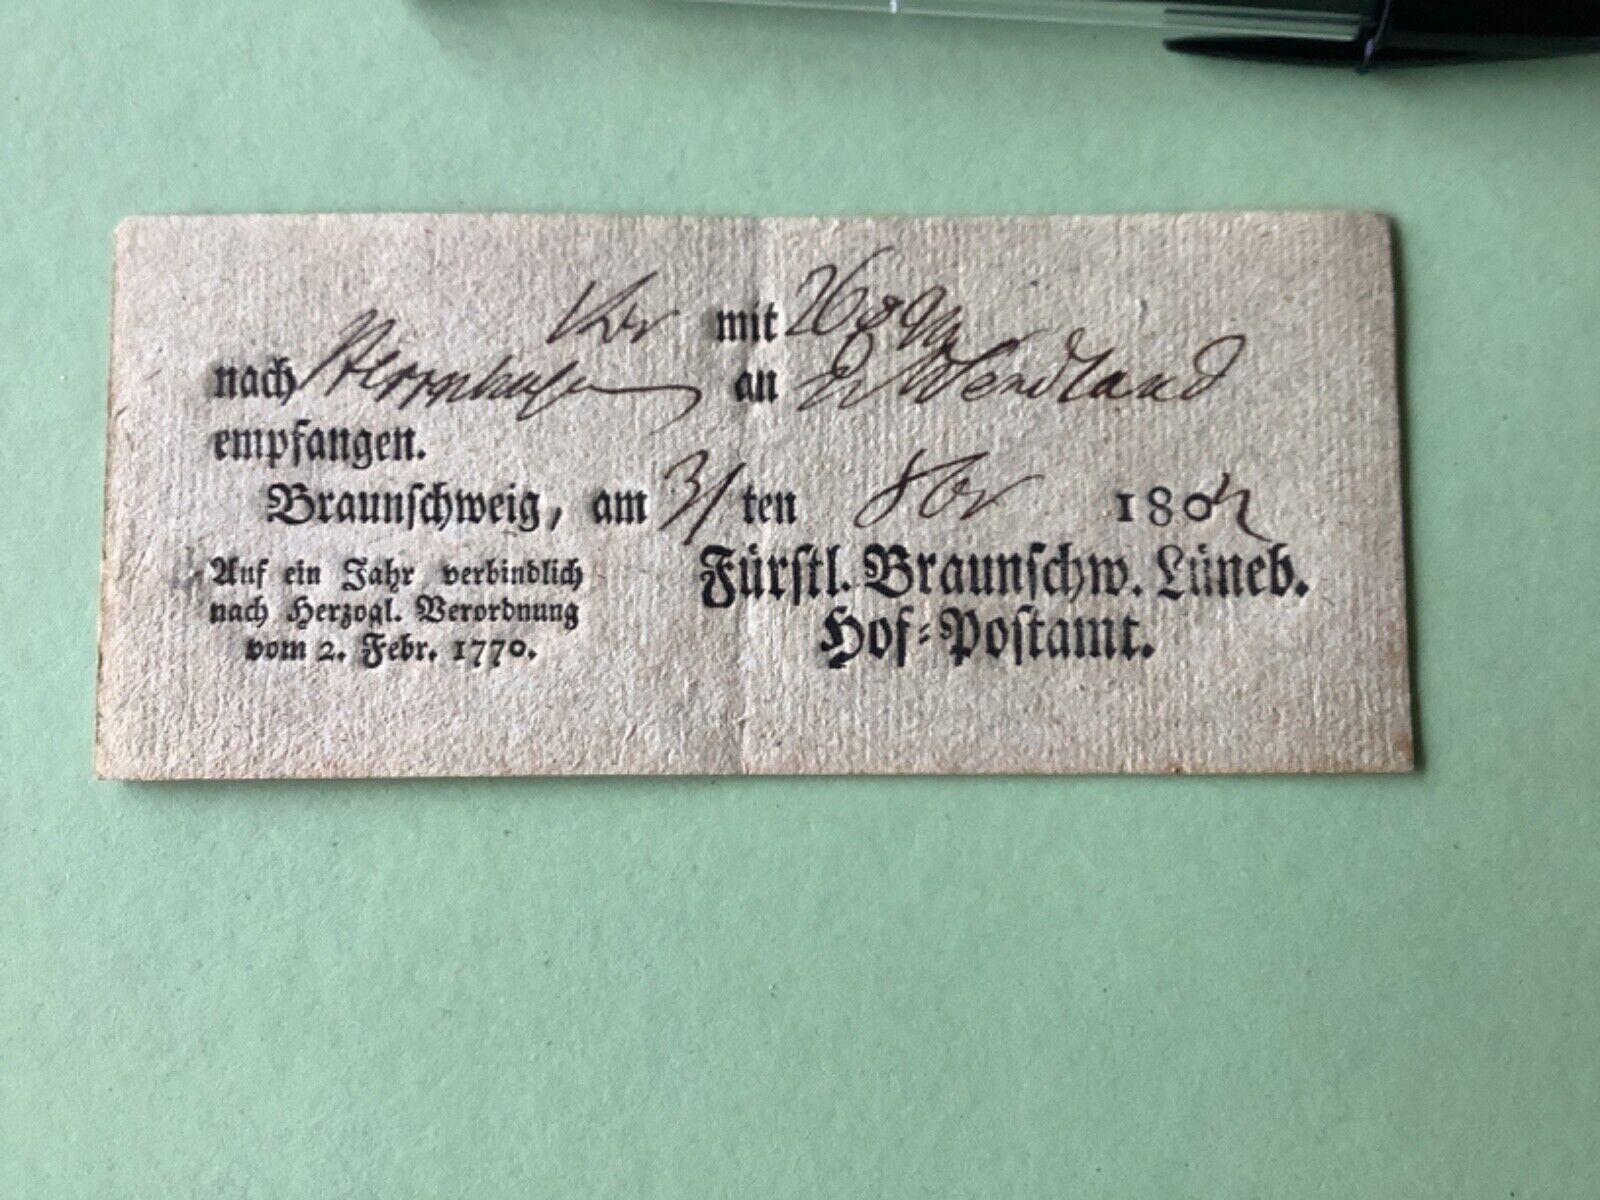 mit
nach Herrnhausen an Wendland
empfangen.
Braunſchweig, am 31 ten 8br 180
Auf ein Jahr verbindlich
nach Herzogl. Verordnung
vom 2. Febr. 1770.
Fürſtl. Braunſchw. Lüneb.
Hof-Poſtamt.